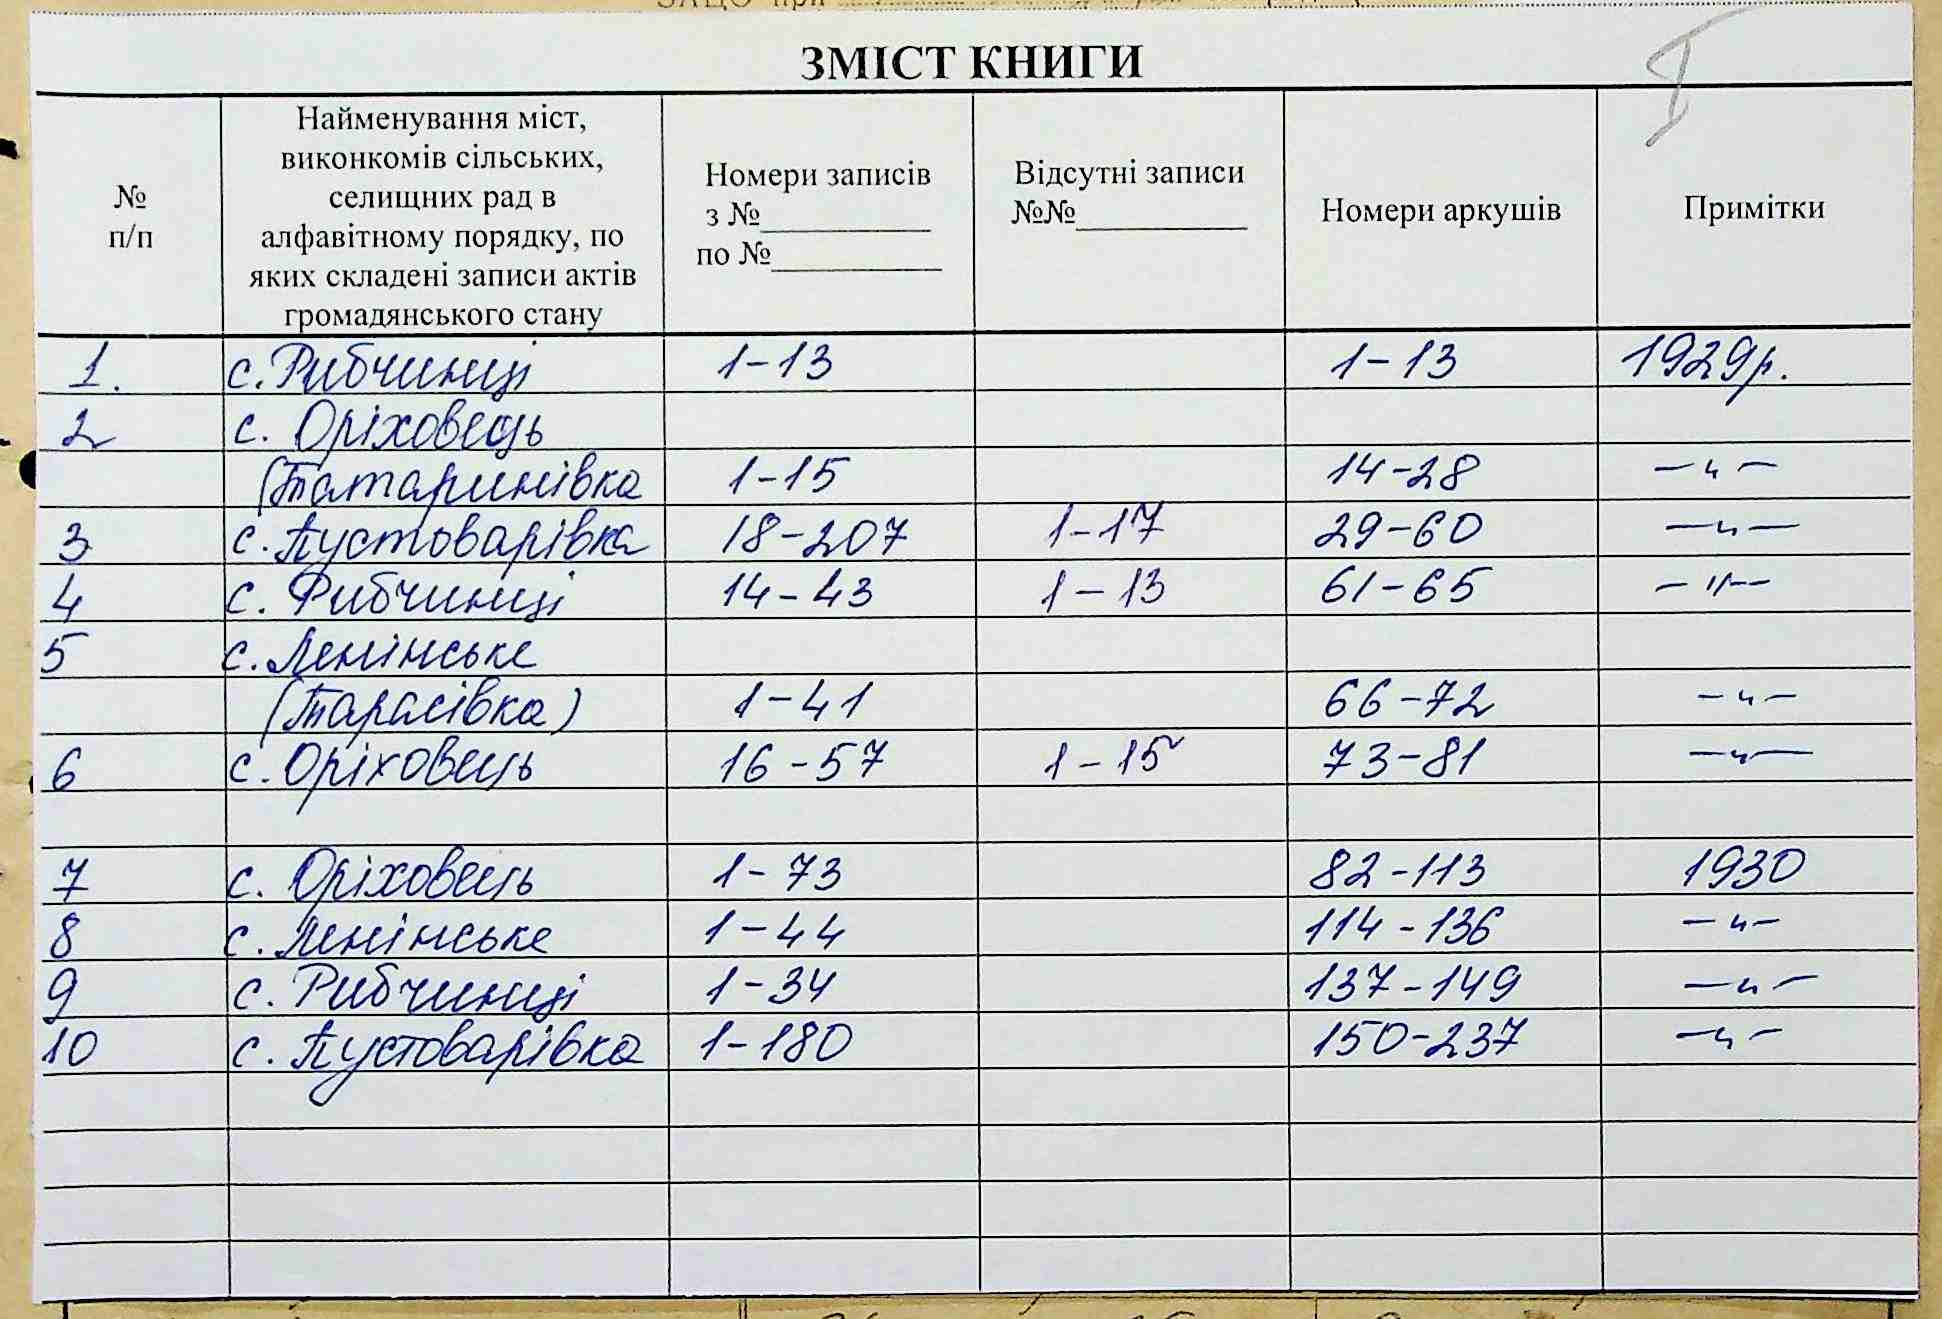 ЗМІСТ КНИГИ
I
№
п/п
Найменування міст,
виконкомів сільських,
селищних рад в
алфавітному порядку, по
яких складені записи актів
громадянського стану
Номери записів
з №__________
по №__________
Відсутні записи
№№__________
Номери аркушів
Примітки
1. с. Рибчинці 1-13 1-13 1929р.
2 с. Оріховець
(Татаринівка 1-15 14-28 -"-
3 с. Пустоварівка 18-207 1-17 29-60 -"-
4 с. Рибчинці 14-43 1-13 61-65 -"-
5 с. Ленінське
(Тарасівка) 1-41 66-72 -"-
6 с. Оріховець 16-57 1-15 73-81 -"-
7 с. Оріховець 1-73 82-113 1930
8 с. Ленінське 1-44 114-136 -"-
9 с. Рибчинці 1-34 137-149 -"-
10 с. Пустоварівка 1-180 150-237 -"-